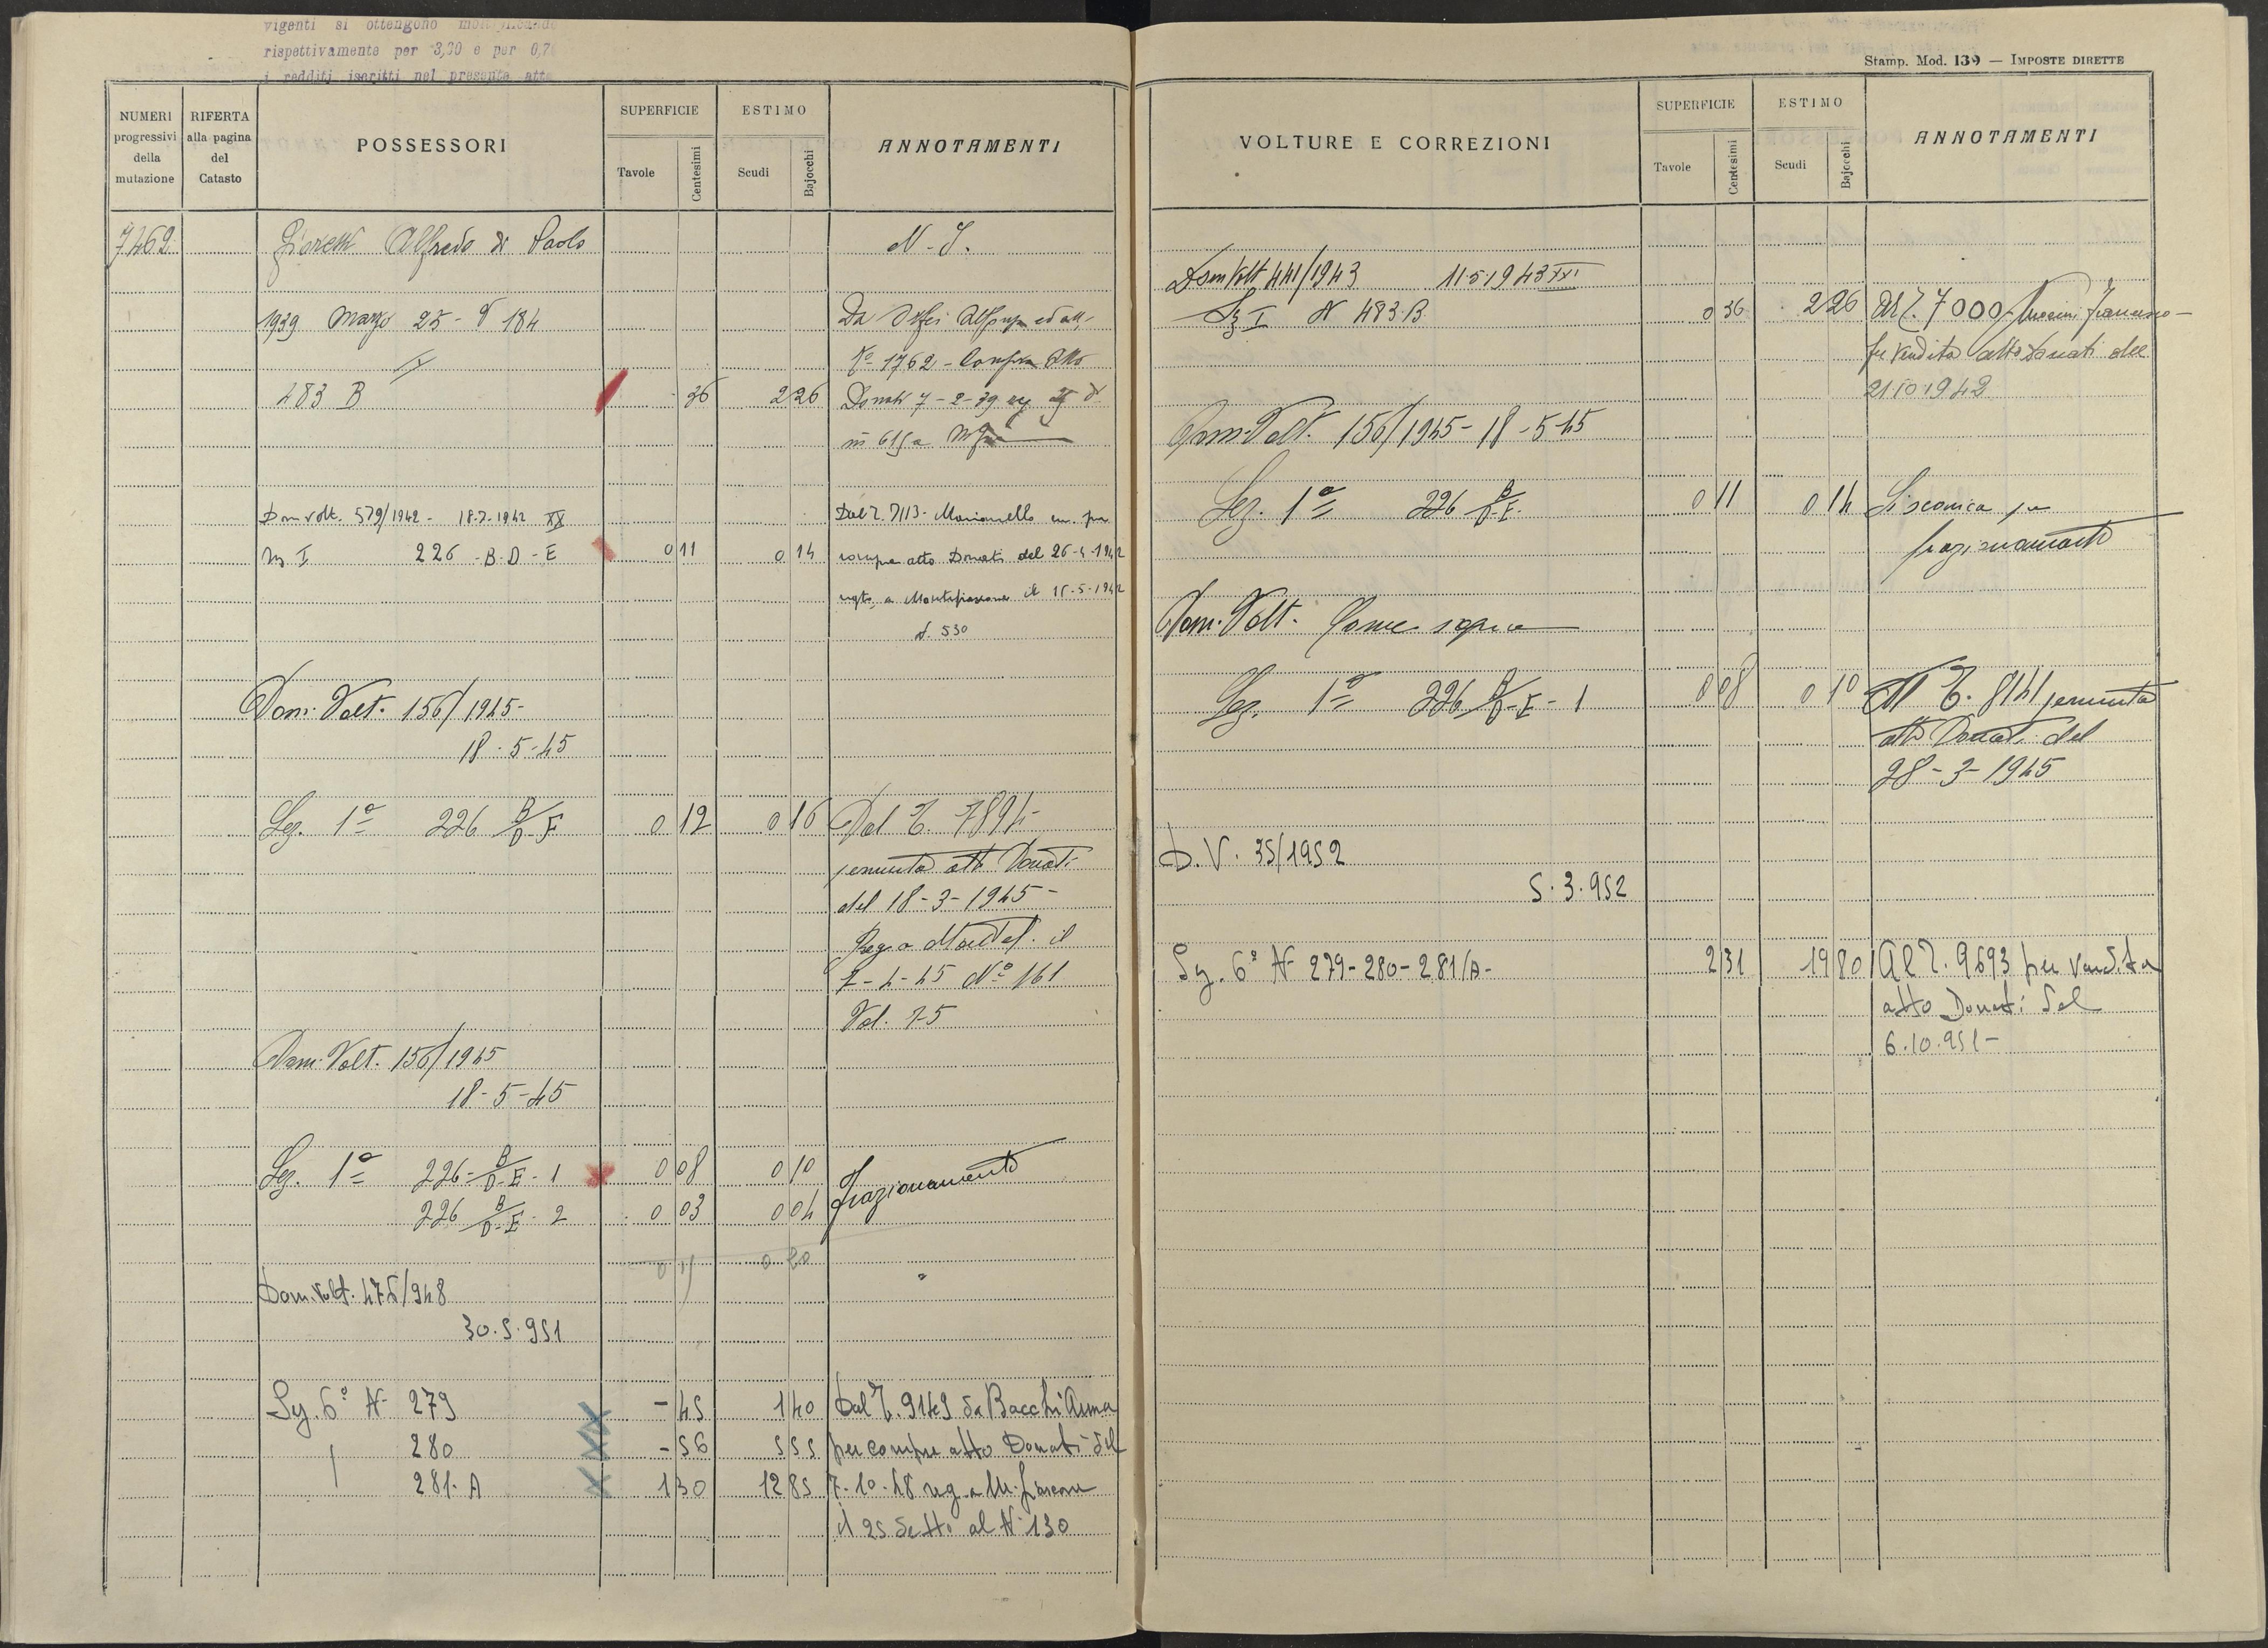 vigenti si ottengono moltiplicando
rispettivamente per 3,30 e per 0,7
i redditi iscritti nel presente atto
NUMERI progressivi della mutazione
RIFERTA alla pagina del Catasto
POSSESSORI
SUPERFICIE
Tavole
Centesimi
ESTIMO
Scudi
Bajocchi
ANNOTAMENTI
7462 Alfredo di Paolo
1939 Marzo 25 - 184
N°- 1762 -
483 B - 36 2 26 Donati 7 - 2 - 39
Dom volt. 579/1942 - 18.7.1942 XX Dal T. 7113 - per
I 226 - B - D - E 0 11 0 14 compra atto Donati del 26-4-1942
a Montefiascone il 15-5-1942
N. 530
Dom. Volt. 156/1945 -
18 - 5 - 45
Sez. 1ª 226 B/D-F 0 12 0 16 Dal T. 7894 -
permuta atto Donati
del 18 - 3 - 1945 -
Reg. a Montef. il
- 4 - 45 N° 161
Vol. 75
Dom. Volt. 156/1945
18 - 5 - 45
Sez. 1ª 226 - B/D-E - 1 0 08 0 10 frazionamento
226 B/D-E - 2 0 03 0 04
0 20
Dom. Volt. 475/948
30.5.951
Sz. 6ª N- 279 - 45 1 40 Dal T. 9149 da Bacchi Anna
280 - 56 5 55 per compra atto Donati del
281. A 1 30 12 85 7-10-48 reg. a M. fiascone
il 25 detto al N° 130
Stamp. Mod. 139 — IMPOSTE DIRETTE
VOLTURE E CORREZIONI
SUPERFICIE
Tavole
Centesimi
ESTIMO
Scudi
Bajocchi
ANNOTAMENTI
Dom Volt 441/1943 11.5.1943 XXI
Sz I N 483 B 0 36 2 26 Al T. 7000
per vendita atto Donati del
21.10.1942
Dom. Volt. 156/1945 - 18 - 5 - 45
Sez. 1ª 226 B/D-E 0 11 0 14 Si scarica per
frazionamento
Dom. Volt. Come sopra
Sez. 1ª 226 B/D-E - 1 0 08 0 10 Al T. 8141 permuta
atto Donati del
28 - 3 - 1945
D. V. 35/1952
5.3.952
Sz. 6ª N- 279 - 280 - 281/A - 2 31 19 80 Al T. 9693 per vendita
atto Donati del
6.10.951 -